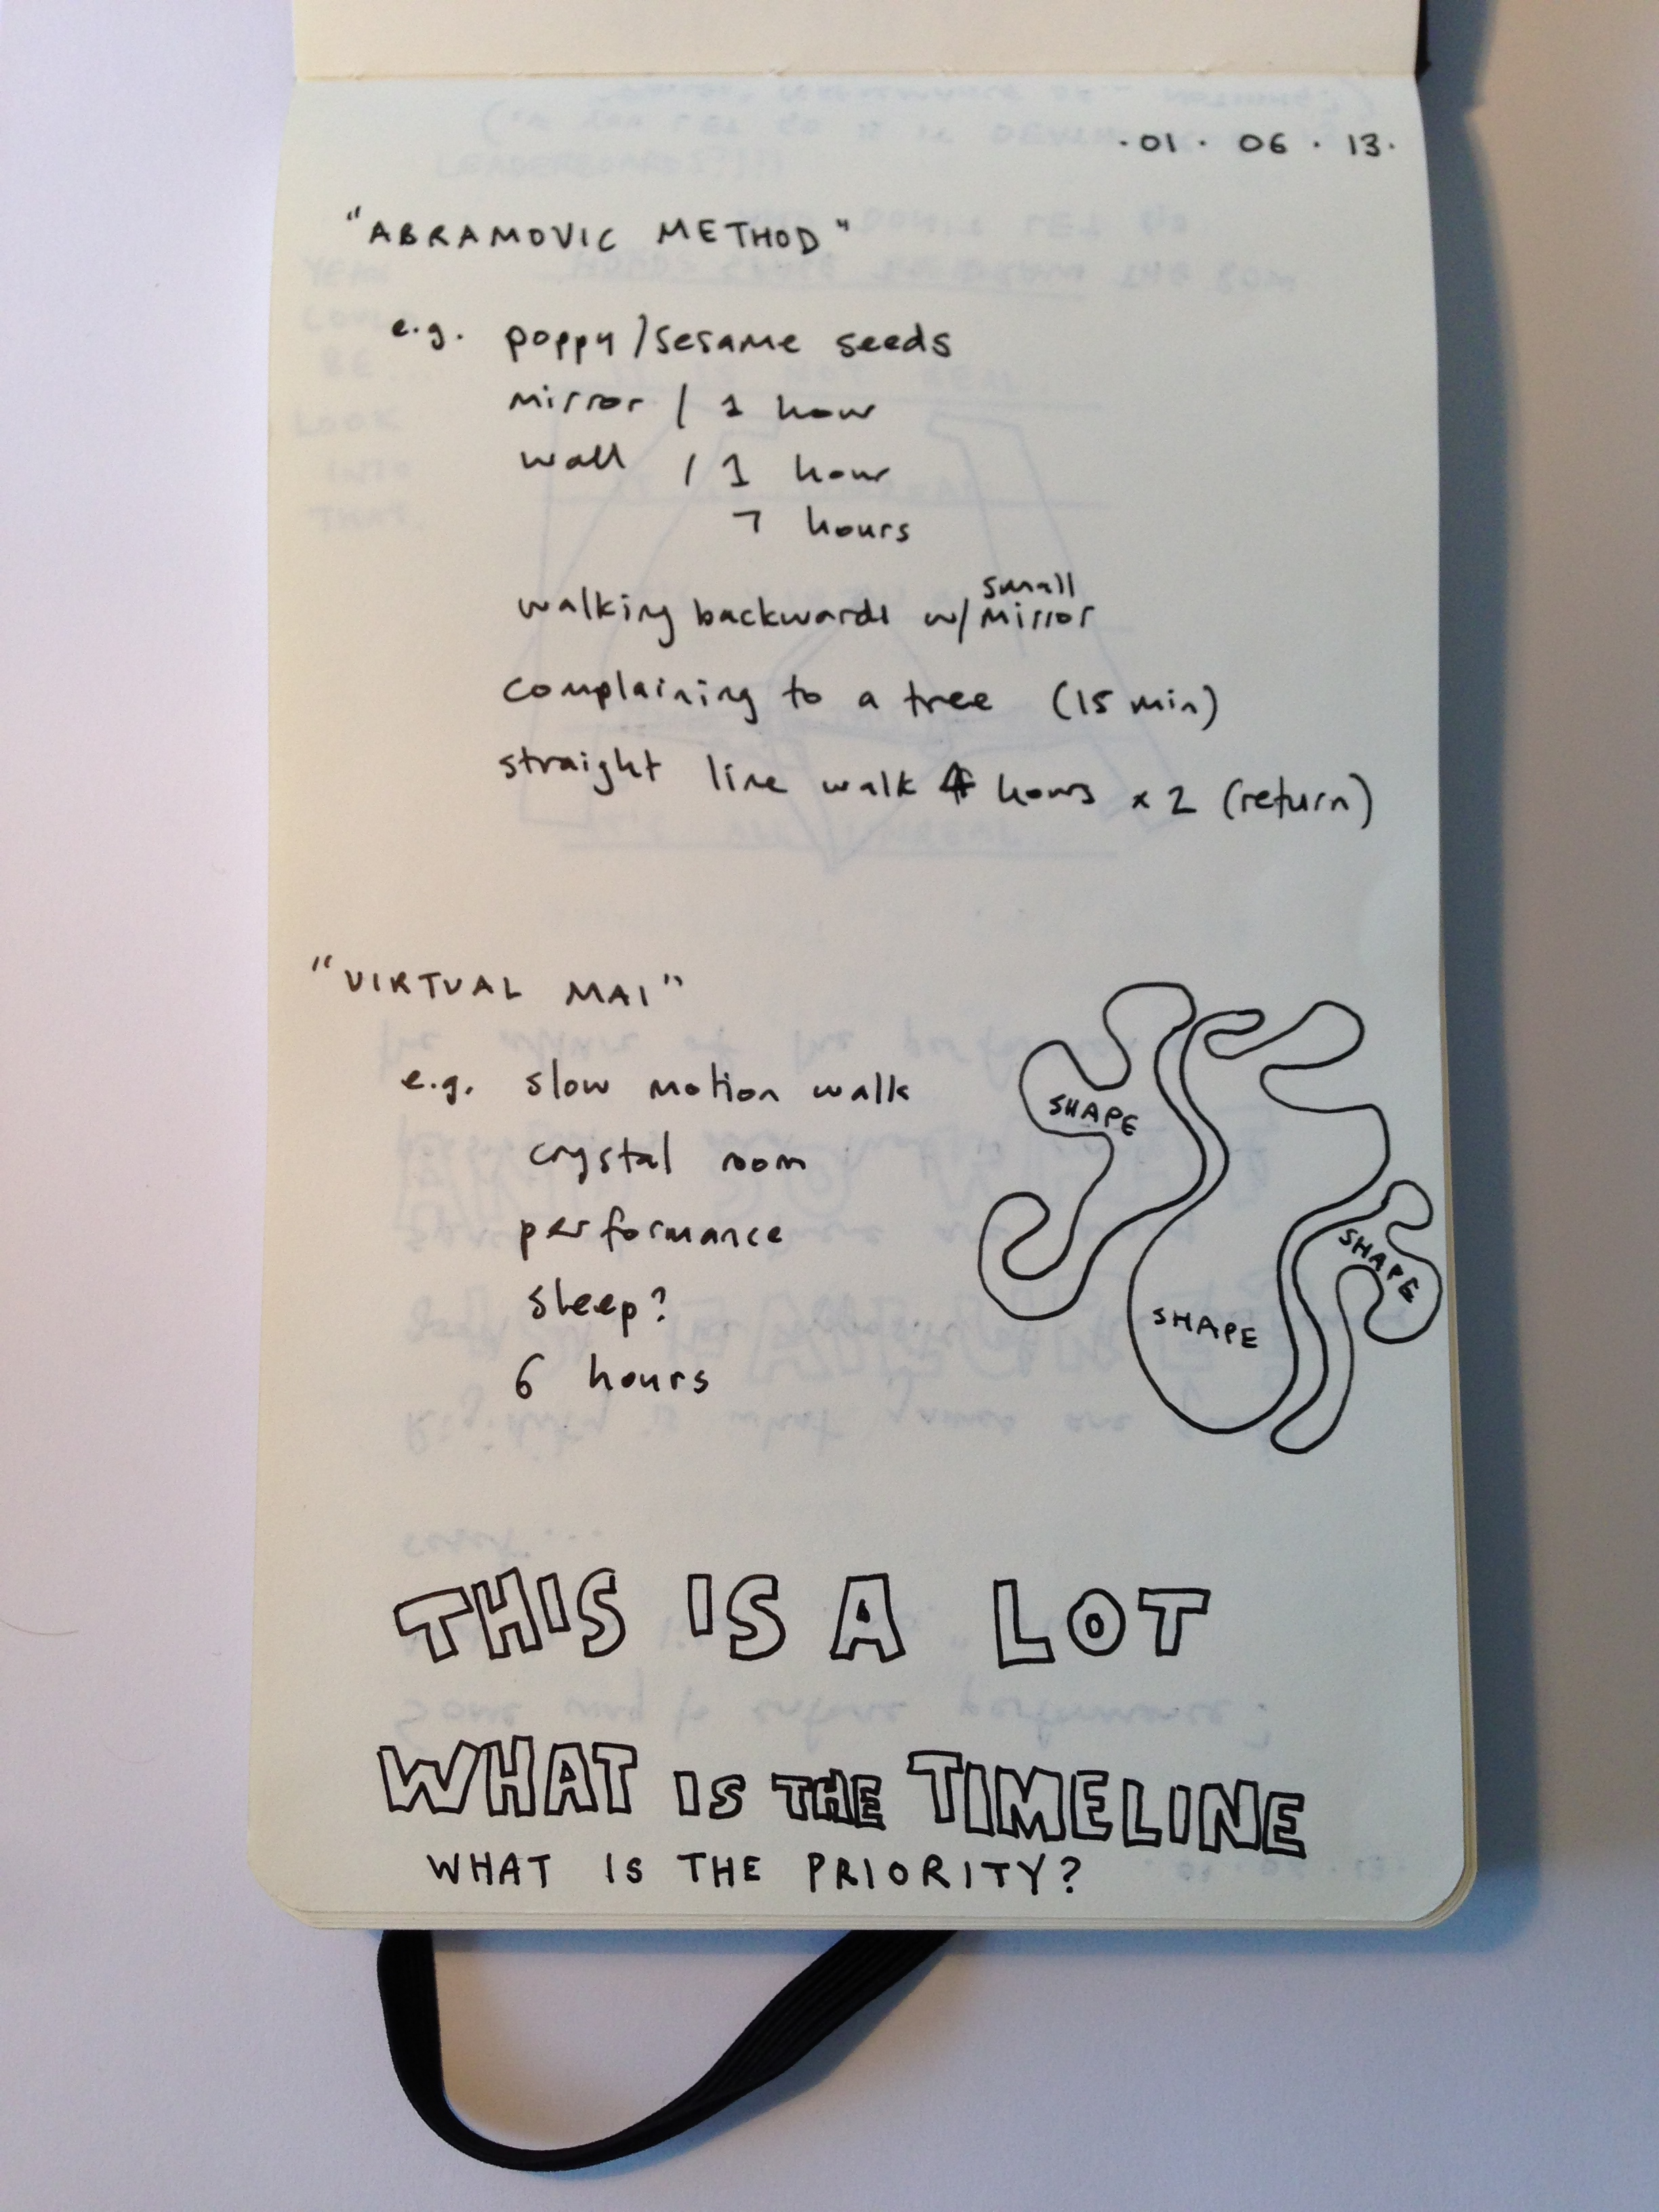 ·01· 06 · 13·
"ABRAMOVIC METHOD"
e.g. poppy/sesame seeds
mirror / 1 hour
wall / 1 hour
7 hours
small
walking backwards w/ mirror
complaining to a tree (15 min)
straight line walk 4 hours x 2 (return)
"VIRTUAL MAI"
e.g. slow motion walk
crystal room
performance
sleep?
6 hours
SHAPE
SHAPE
SHAPE
THIS IS A LOT
WHAT IS THE TIMELINE
WHAT IS THE PRIORITY?